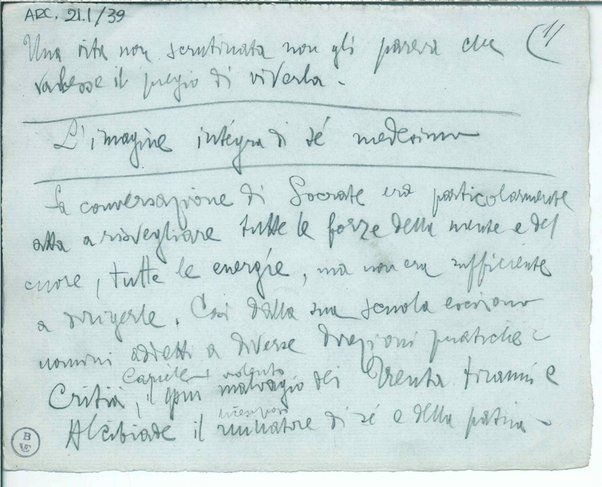 ARC. 21.1/39
1)
Una vita non scrutinata non gli pareva che
valesse il pregio di viverla.
L'imagine integra di sé medesimo
La conversazione di Socrate era particolarmente
atta a risvegliare tutte le forze della mente e del
cuore, tutte le energie, ma non era sufficiente
a dirigerle. Così dalla sua scuola escirono
uomini addetti a diverse direzioni pratiche:
Capitale voluto
Critia, il malvagio dei Trenta tiranni e
Alcibiade il ruinatore di sé e della patria.
B